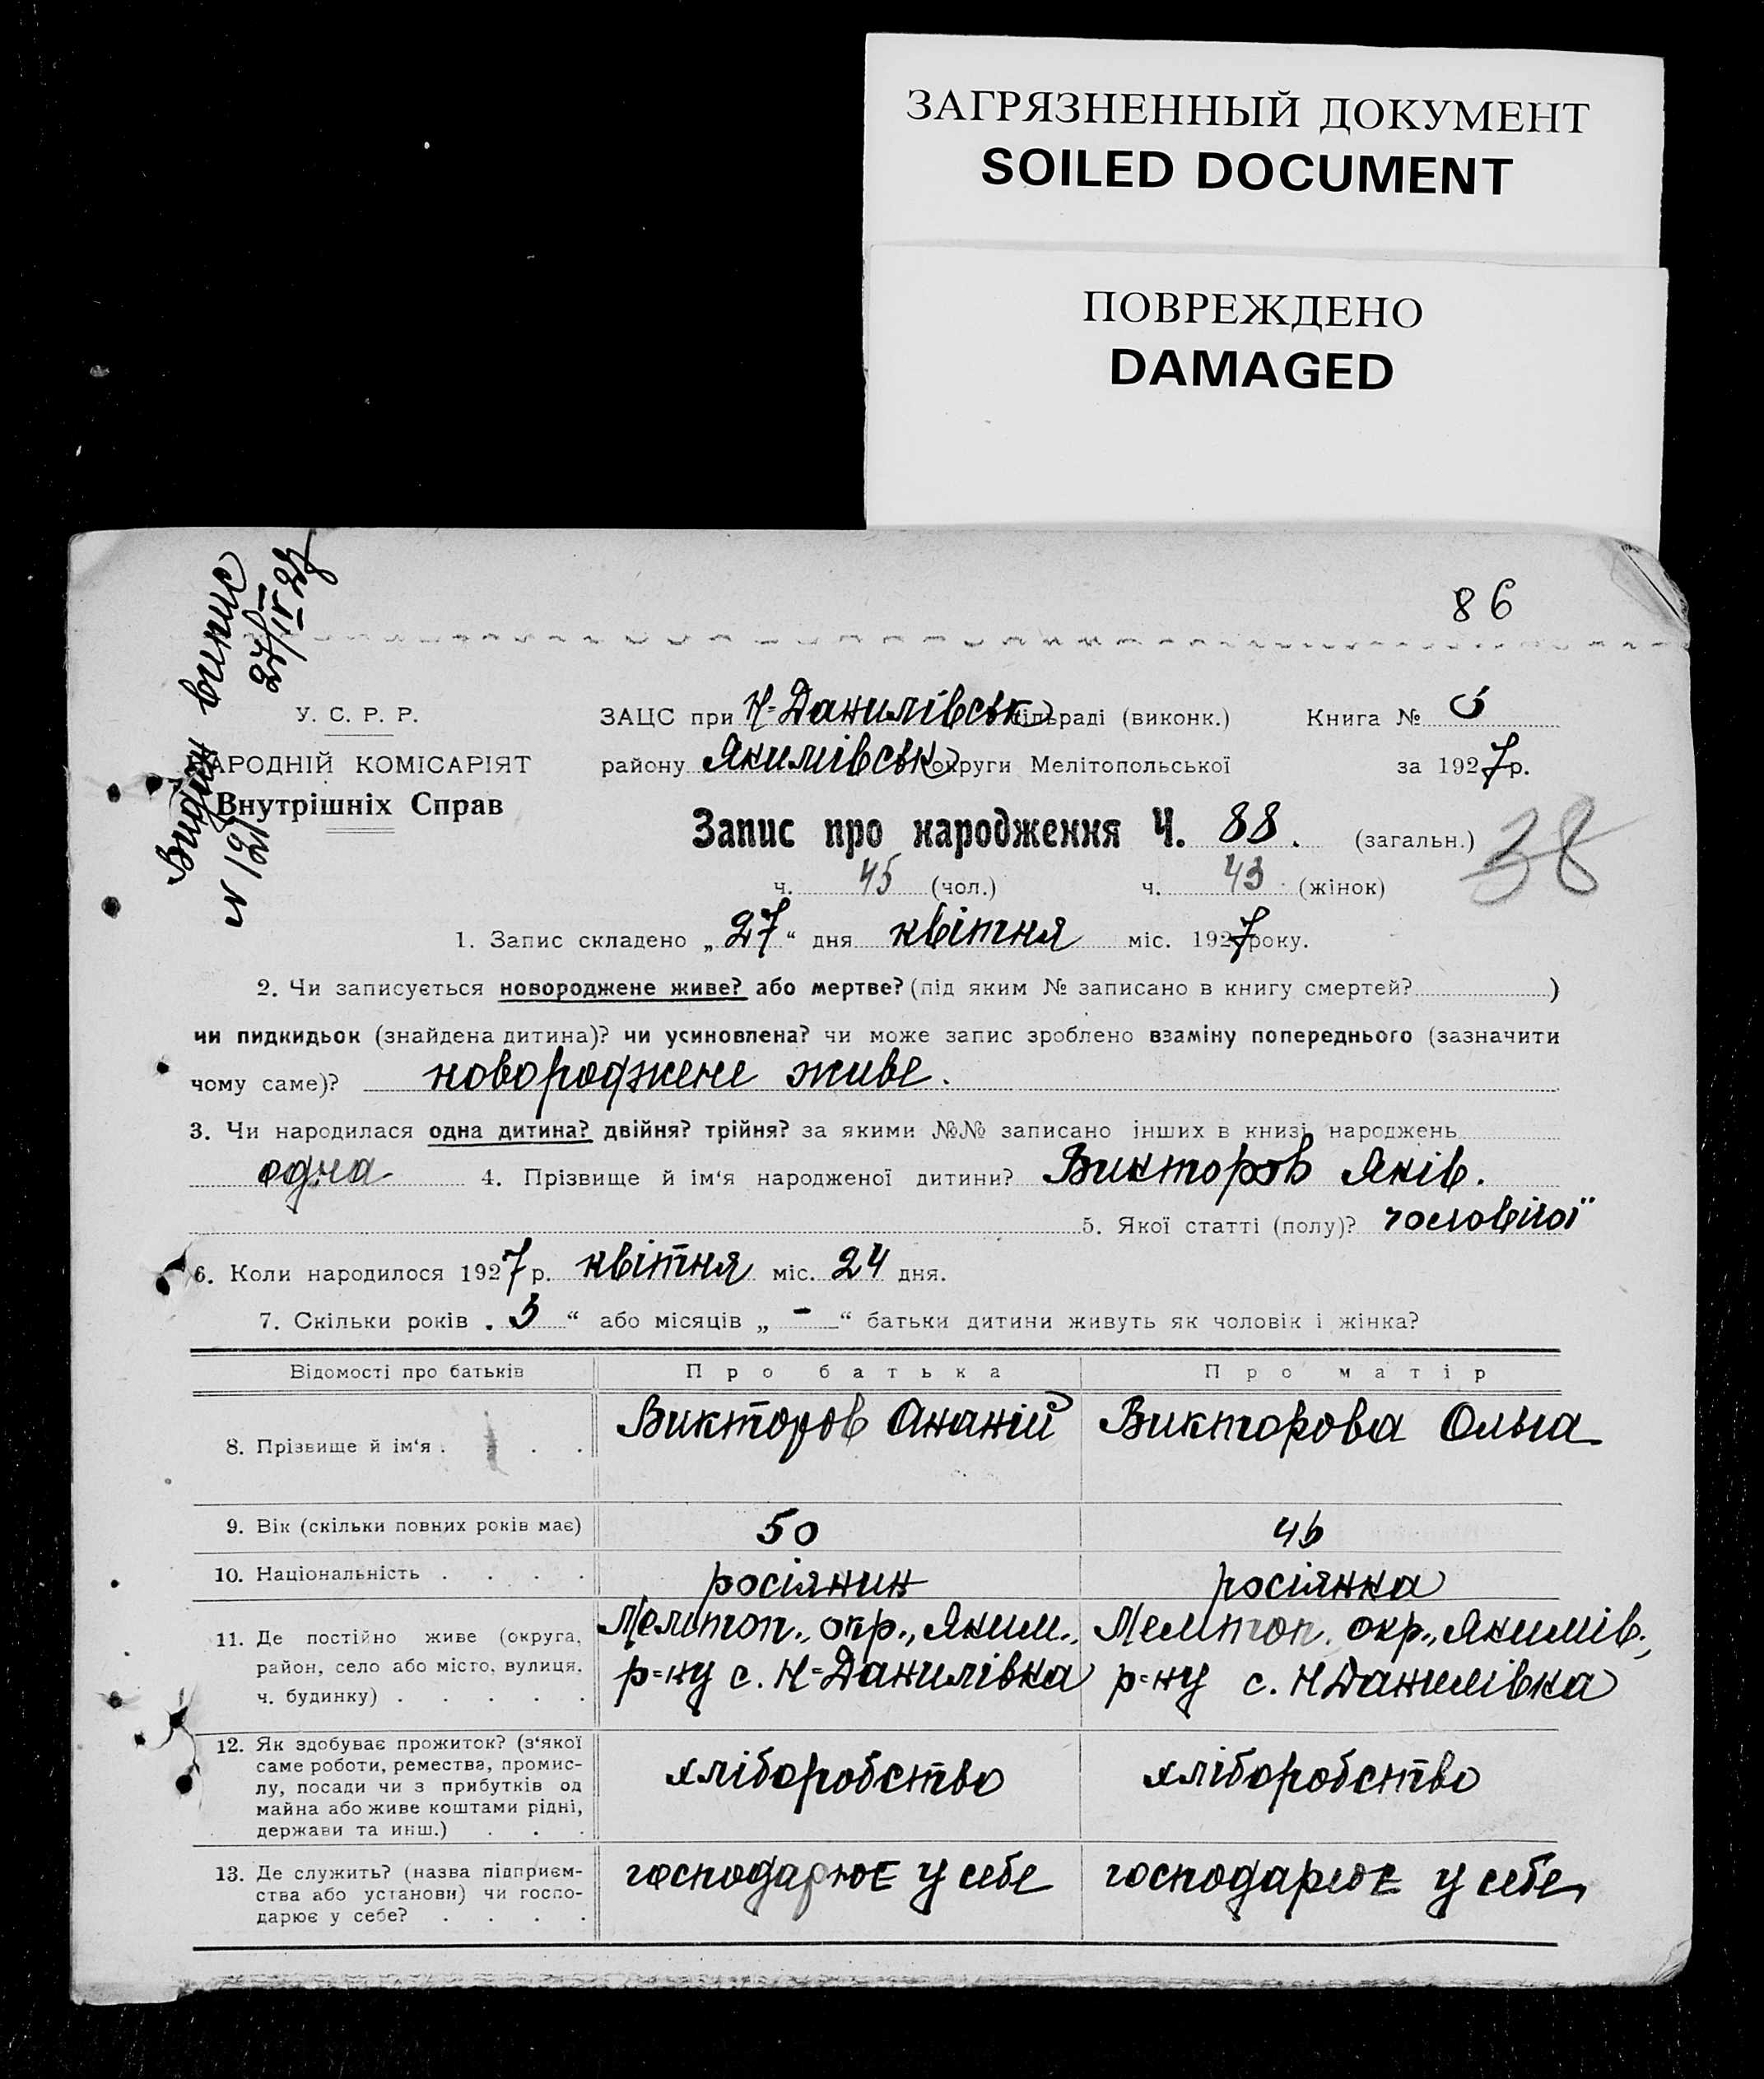 ЗАГРЯЗНЕННЫЙ ДОКУМЕНТ
SOILED DOCUMENT
ПОВРЕЖДЕНО
DAMAGED
86
Видан випис
27/IV 27
N 121
У. С. Р. Р.
НАРОДНІЙ КОМІСАРІЯТ
Внутрішніх Справ
ЗАЦС при Н-Данилівськ сільраді (виконк.) Книга №
району Якимівськ округи Мелітопольської за 1927 р.
Запис про народження Ч. 88. (загальн.) 38
ч. 45 (чол.) ч. 43 (жінок)
1. Запис складено „ 27 “ дня квітня міс. 1927 року.
2. Чи записується новороджене живе? або мертве? (під яким № записано в книгу смертей? )
чи пидкидьок (знайдена дитина)? чи усиновлена? чи може запис зроблено взаміну попереднього (зазначити
чому саме)? новороджене живе.
3. Чи народилася одна дитина? двійня? трійня? за якими №№ записано інших в книзі народжень
одна 4. Прізвище й ім‘я народженої дитини? Викторов Яків.
5. Якої статті (полу)? чоловічої
6. Коли народилося 1927 р. квітня міс. 24 дня.
7. Скільки років „ 3 “ або місяців „ - “ батьки дитини живуть як чоловік і жінка?
Відомості про батьків Про батька Про матір
8. Прізвище й ім‘я . . . . Викторов Ананій Викторова Ольга
9. Вік (скільки повних років має) 50 46
10. Національність . . . . росіянин росіянка
11. Де постійно живе (округа, Мелітоп., окр., Яким., Мелітоп. окр., Якимів.,
район, село або місто, вулиця, р=ну с. Н=Данилівка р=ну с. Н Данилівка
ч. будинку) . . . . .
12. Як здобуває прожиток? (з‘якої
саме роботи, ремества, промис-
лу, посади чи з прибутків од хліборобство хліборобство
майна або живе коштами рідні,
держави та инш.) . . .
13. Де служить? (назва підприєм- господарює у себе господарює у себе
ства або установи) чи госпо-
дарює у себе? . . . .